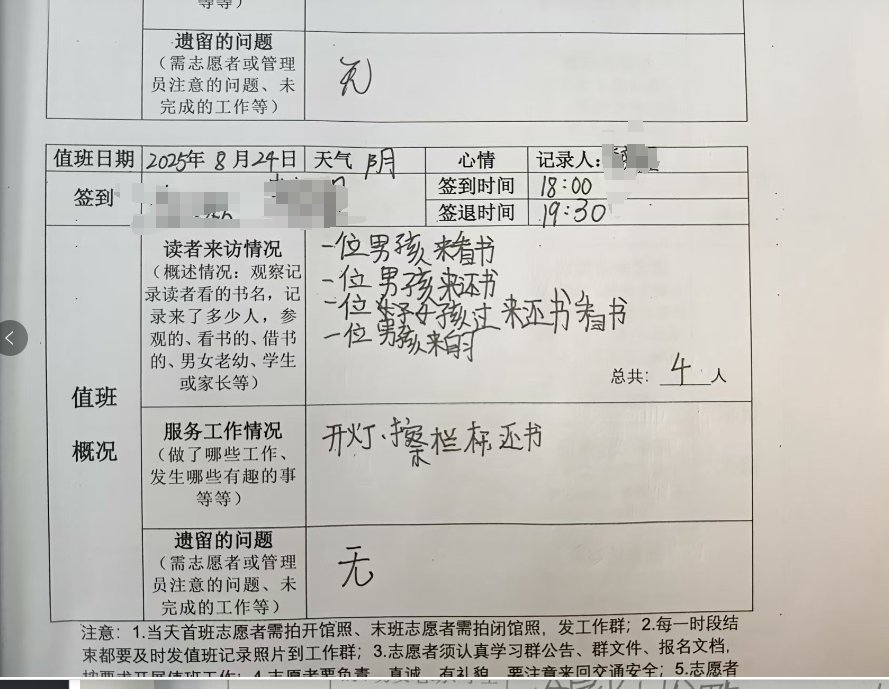 等等）
遗留的问题
（需志愿者或管理
员注意的问题、未
完成的工作等）
无
值班日期 2025年 8月24日 天气 阴 心情 记录人：
签到 签到时间 18:00
签退时间 19:30
读者来访情况
（概述情况：观察记
录读者看的书名，记
录来了多少人，参
观的、看书的、借书
的、男女老幼、学生
或家长等）
一位男孩来看书
一位男孩来还书
一位女孩过来还书看书
一位男孩来自习
总共： 4 人
值班
概况
服务工作情况
（做了哪些工作、
发生哪些有趣的事
等等）
开灯、擦栏标 还书
遗留的问题
（需志愿者或管理
员注意的问题、未
完成的工作等）
无
注意：1.当天首班志愿者需拍开馆照、末班志愿者需拍闭馆照，发工作群；2.每一时段结
束都要及时发值班记录照片到工作群；3.志愿者须认真学习群公告、群文件、报名文档，
按要求开展值班工作；4.志愿者要负责、真诚、有礼貌，要注意来回交通安全；5.志愿者